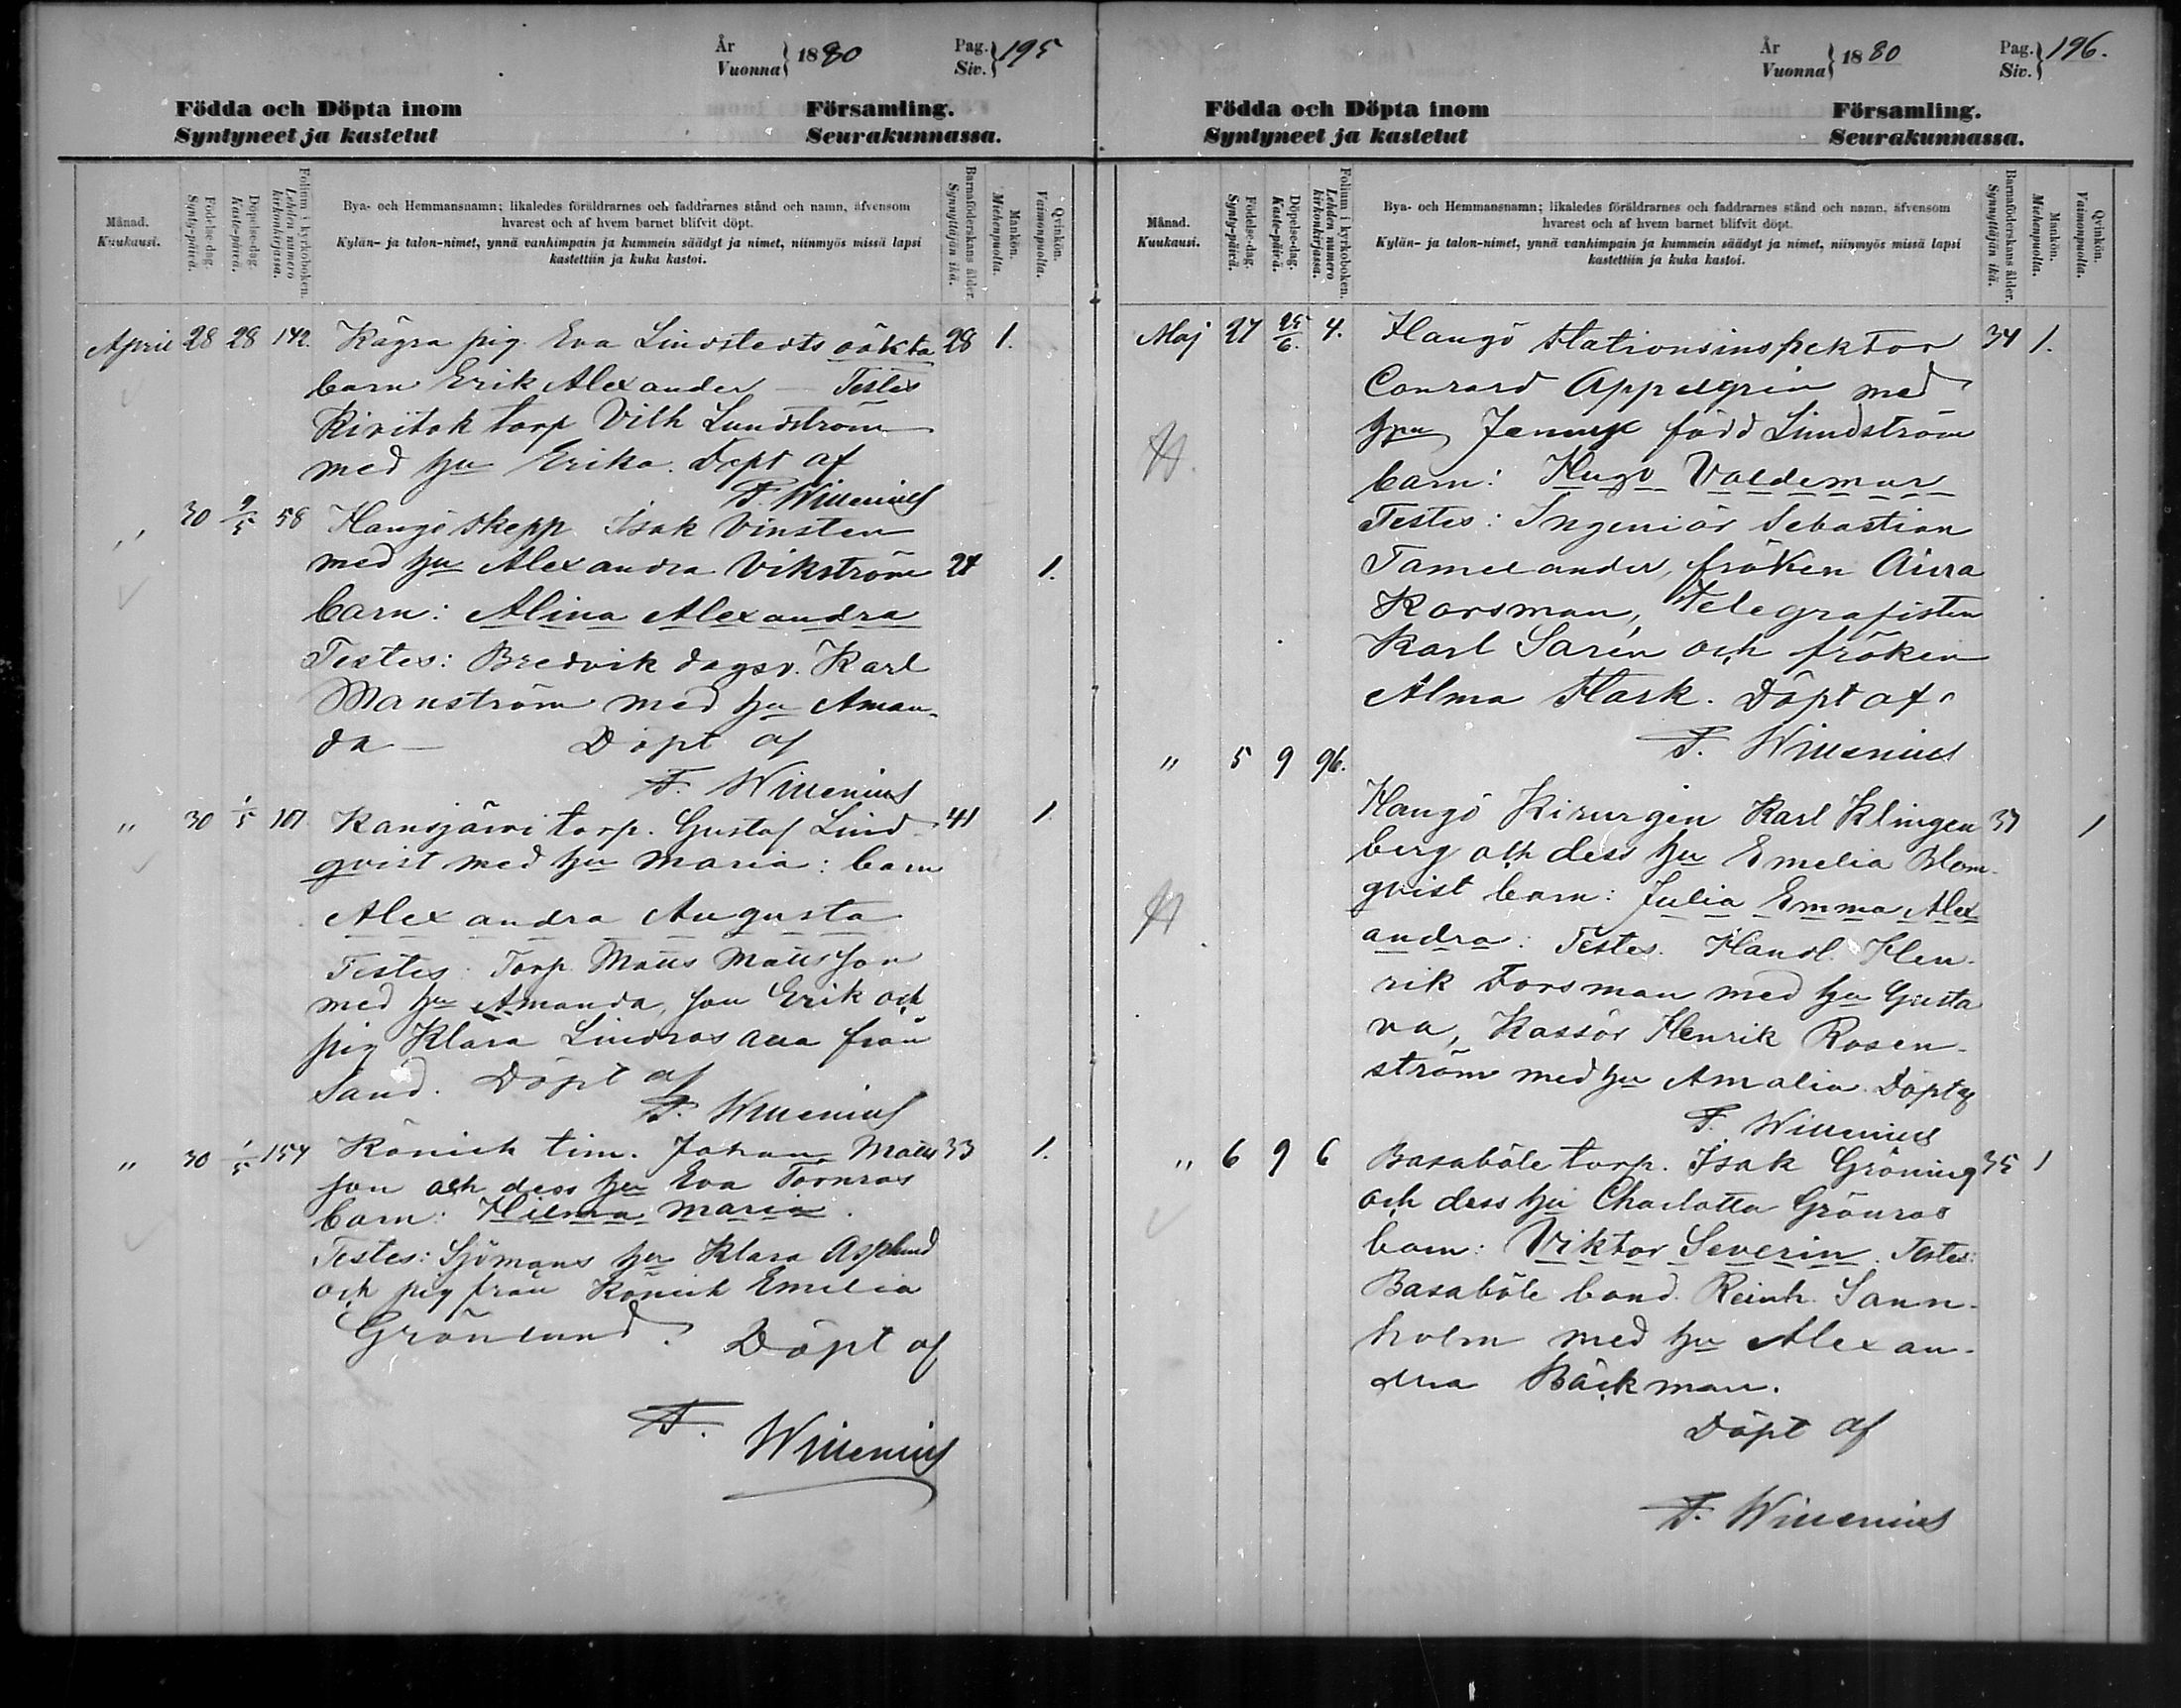 År
Vuonna } 1880 Pag.
Siv. } 195
Födda och Döpta inom Församling.
Syntyneet ja kastetut Seurakunnassa.
Månad.
Kuukausi.
Födelse-dag.
Synty-päivä.
Döpelse-dag.
Kaste-päivä.
Folium i kyrkoboken.
Lehden numero kirkonkirjassa.
Bya- och Hemmansnamn; likaledes föräldrarnes och faddrarnes stånd och namn, äfvensom
hvarest och af hvem barnet blifvit döpt.
Kylän- ja talon-nimet, ynnä vanhimpain ja kummein säädyt ja nimet, niinmyös missä lapsi
kastettiin ja kuka kastoi.
Barnaföderskans ålder.
Synnyttäjän ikä.
Mankön.
Miehenpuolta.
Qvinkön.
Vaimonpuolta.
April 28 28 142. Rågra pig. Eva Lindstedts oäkta 28 1.
barn Erik Alexander — Testes
torp Vilh Lundström
med hu Erika. Dept af
F. Willenius
" 30 9/5 58 Hangö skepp Isak Vinsten
med hu Alexandra Vikström 24 1.
barn: Alina Alexandra
Testes: Bredvik dagsv. Karl
Manström med hu Aman-
da — Döpt af
F. Willenius
" 30 1/5 101 Kansjärvi torp. Gustaf Lind- 41 1
qvist med hu Maria: barn
Alexandra Augusta
Testes: Torp. Matts Mattsson
med hu Amanda, son Erik och
pig Klara Lindroos från
Sand. Döpt af
F. Willenius
" 30 1/5 154 Könick tim. Johan Matts 33 1.
son och dess hu Eva Tornros
barn: Hilma Maria.
Testes: Sjömans hu Klara Asplund
och pig från Könick Emelia
Grönlund. Döpt af
F. Willenius
År
Vuonna } 1880 Pag.
Siv. } 196.
Födda och Döpta inom Församling.
Syntyneet ja kastetut Seurakunnassa.
Månad.
Kuukausi.
Födelse-dag.
Synty-päivä.
Döpelse-dag.
Kaste-päivä.
Folium i kyrkoboken.
Lehden numero kirkonkirjassa.
Bya- och Hemmansnamn; likaledes föräldrarnes och faddrarnes stånd och namn, äfvensom
hvarest och af hvem barnet blifvit döpt.
Kylän- ja talon-nimet, ynnä vanhimpain ja kummein säädyt ja nimet, niinmyös missä lapsi
kastettiin ja kuka kastoi.
Barnaföderskans ålder.
Synnyttäjän ikä.
Mankön.
Miehenpuolta.
Qvinkön.
Vaimonpuolta.
Maj 27 25/6. 4. Hangö Stationsinspektor 34 1.
Conrard Appelgrin med
Jenny född Lindström
H. barn: Hugo Valdemar
Testes: Ingeniör Sebastian
Tamelander, fröken Aina
Korsman, Telegrafisten
Karl Sarén och fröken
Alma Stark. Döpt af
F. Willenius
" 5 9 96.
Hangö Kirurgen Karl Klingen 37 1
berg och dess hu Emelia Blom-
H. qvist barn: Julia Emma Alex
andra: Testes. Handl. Hen-
rik Forsman med hu Gusta
va, Kassör Henrik Rosen-
ström med hu Amalia. Döpt af
F. Willenius
" 6 9 6 Basaböle torp. Isak Gröning 35 1
och dess hu Charlotta Grönros
barn: Viktor Severin. Testes:
Basaböle bond. Reinh. Sann-
holm med hu Alexan-
dra Bäckman.
Döpt af
F. Willenius